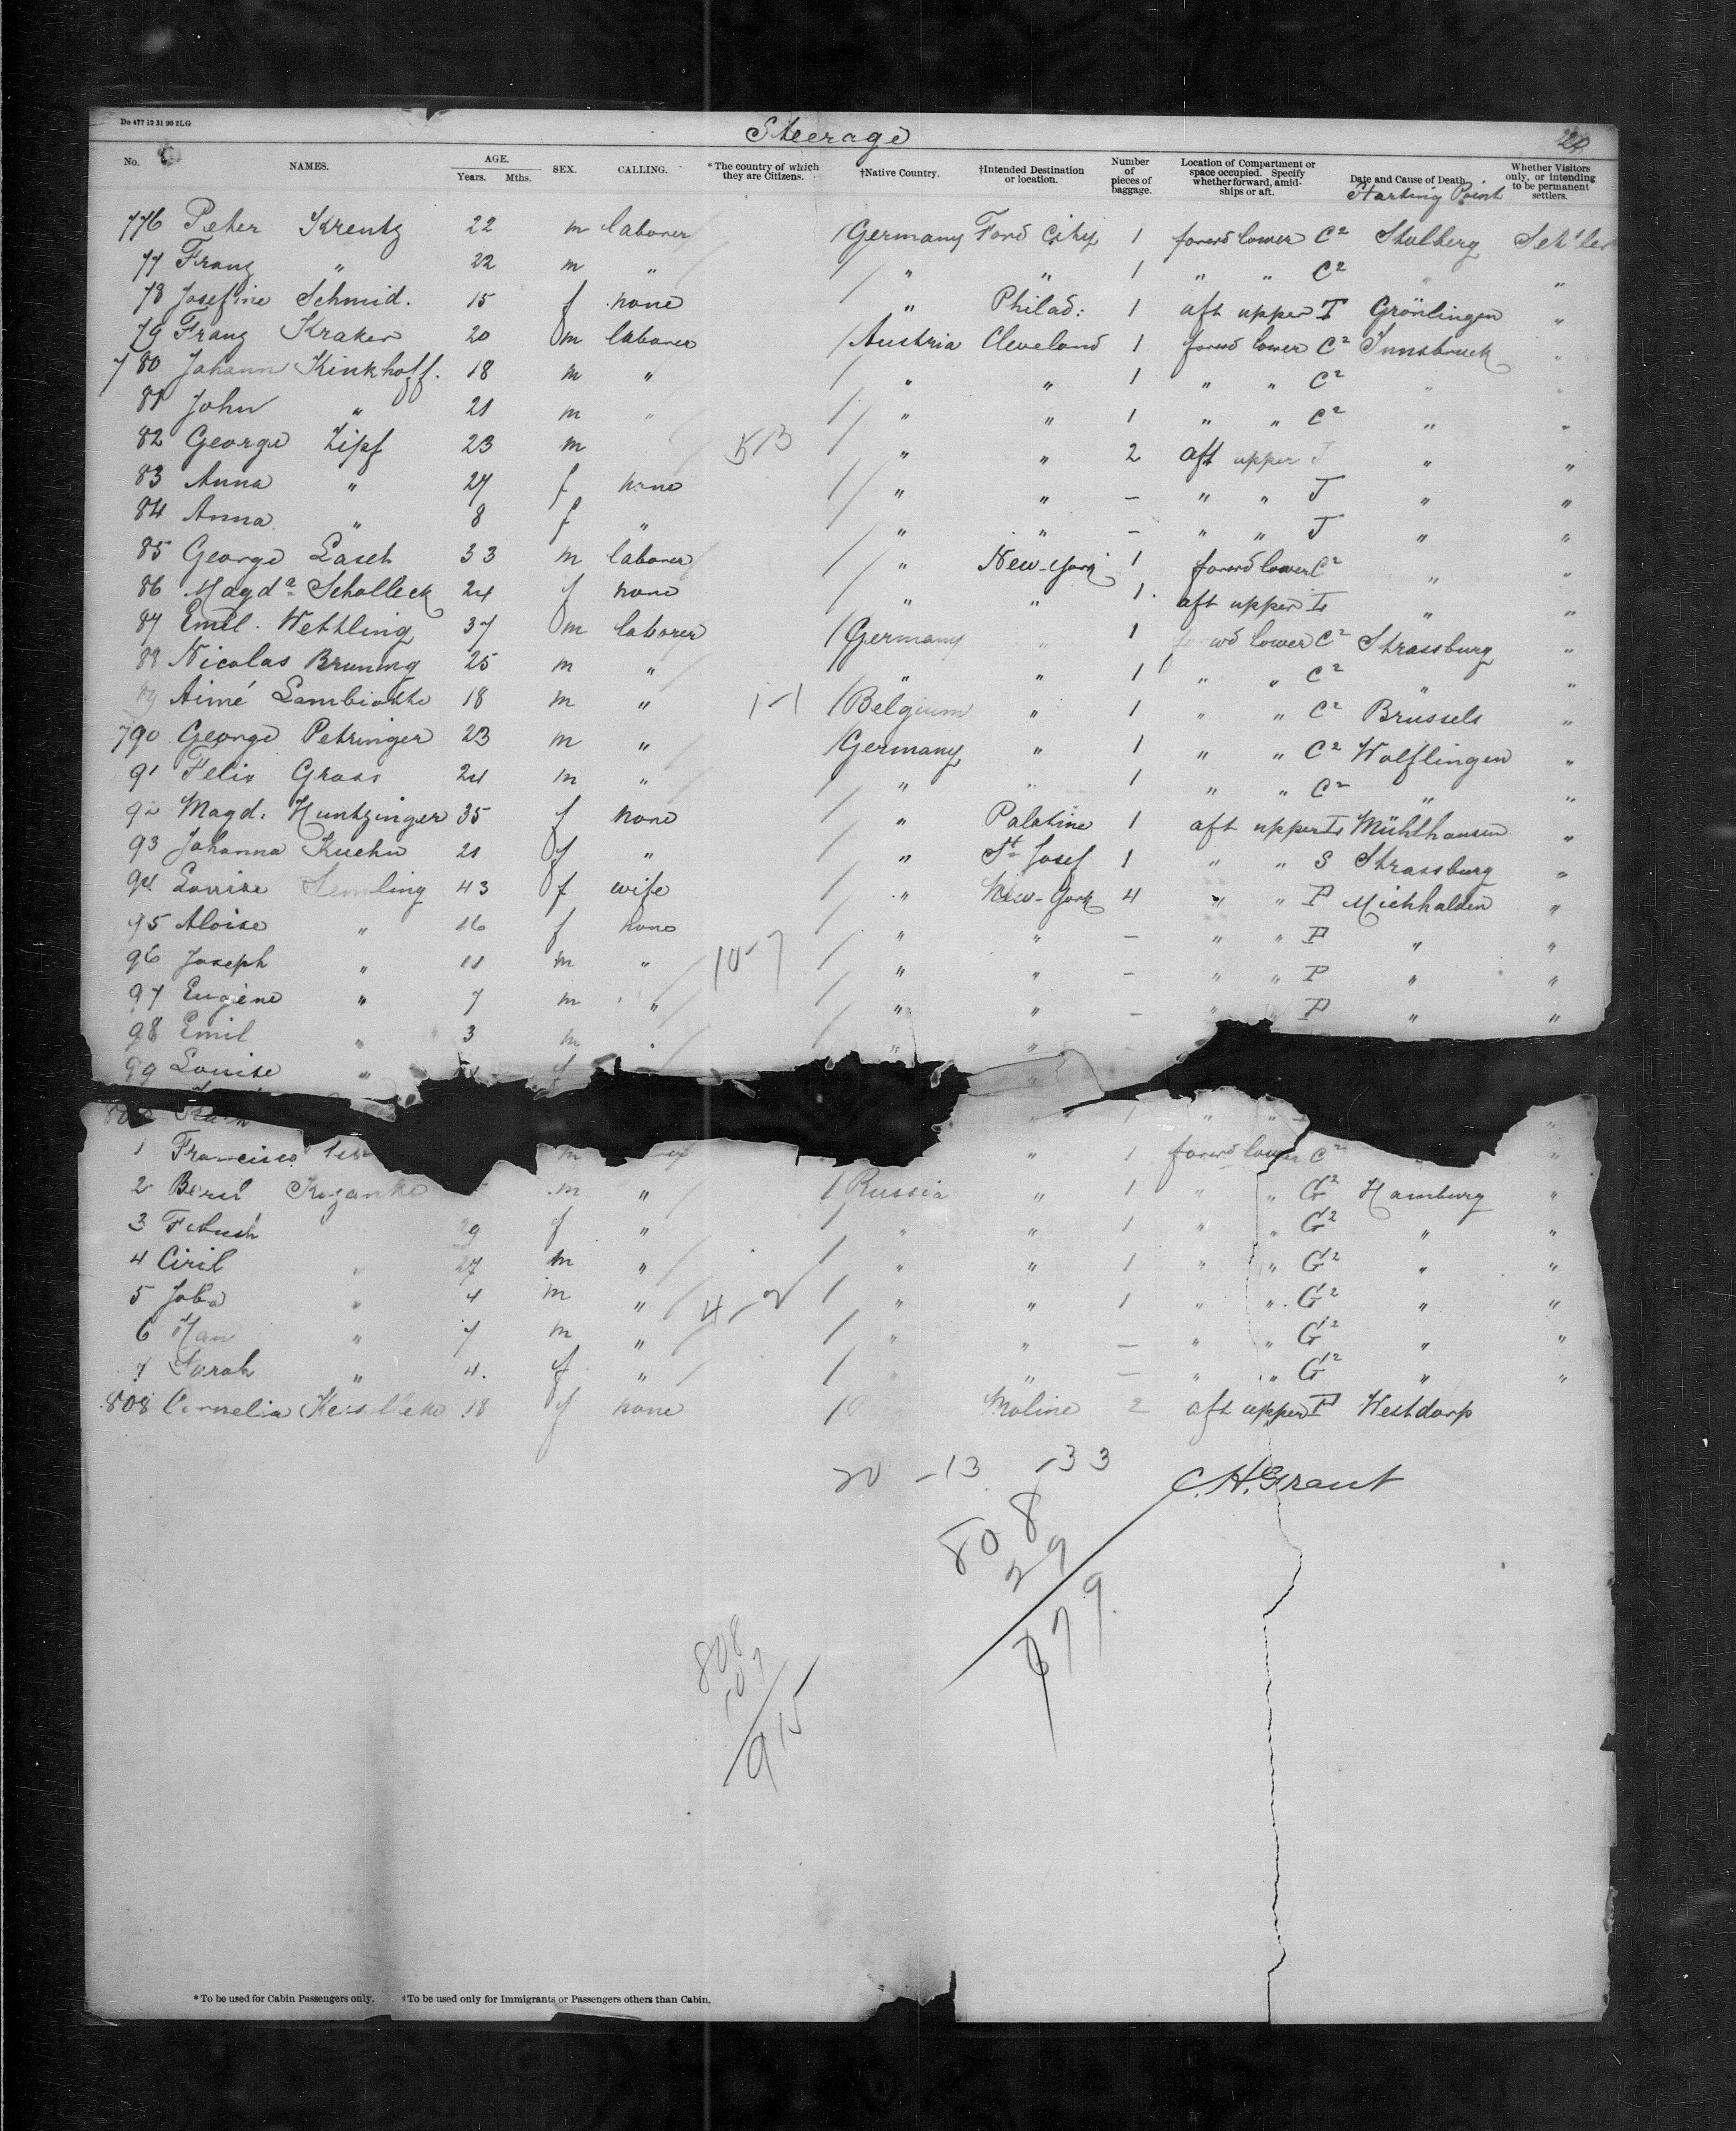 Do 477 12 31 90 2LG
Steerage
No. NAMES. AGE. Years. Mths. SEX. CALLING. *The country of which they are Citizens. †Native Country. †Intended Destination or location. Number of pieces of baggage. Location of Compartment or space occupied. Specify whether forward, amidships or aft. Date and Cause of Death. Starting Point Whether Visitors only, or intending to be permanent settlers.
776 Peter Krentz 22 m laborer Germany Ford City 1 forwd lower C2 Stolberg
77 Franz " 22 m " " " 1 " " C2 " "
78 Josefine Schmid. 15 f none " Philad: 1 aft upper I Grönlingen "
79 Franz Kraker 20 m laborer Austria Cleveland 1 forwd lower C2 Innsbruck "
780 Johann Kinkhoff. 18 m " " " 1 " " C2 " "
81 John " 21 m " " " 1 " " C2 " "
82 George Zipf 23 m 5/3 " " 2 aft upper J " "
83 Anna " 27 f none " " — " " J " "
84 Anna " 8 f " " " — " " J " "
85 George Lasch 33 m laborer " New-York 1 forwd lower C2 " "
86 Magda Scholleck 24 f none " " 1. aft upper " "
87 Emil. Wettling 37 m laborer Germany " 1 lower C2 Strassburg "
88 Nicolas Bruning 25 m " " " 1 " " C2 " "
89 Aimé Lambiotte 18 m " 1-1 Belgium " 1 " " C2 Brussels "
790 George Petringer 23 m " Germany " 1 " " C2 Wolflingen "
91 Felix Gross 24 m " " " 1 " " C2 " "
92 Magd. Huntzinger 35 f none " Palatine 1 aft upper Mühlhausen "
93 Johanna Kuehn 21 f " " St Josef 1 " " S Strassburg "
94 Louise 43 f wife " New-York 4 " " P Michhalden "
95 Aloise " 16 f none " " — " " P " "
96 Joseph " 11 m " 10-7 " " — " " P " "
97 Eugène " 7 m " " " — " " P " "
98 Emil " 3 m " "
99 Louise " f "
1 m " 1 forwd lower C2 "
2 m " Russia " 1 " " G2 Hamburg "
3 f " " " 1 " " G2 " "
4 Ciril " 27 m " " " 1 " " G2 " "
5 " 4 m " 4-2 " " 1 " " G2 " "
6 " 7 m " " " — " " G2 " "
7 Sarah " 4. f " " " — " " G2 " "
808 Cornelia 18 f none Moline 2 aft upper P Westdorp
20 -13 -33
C. H. Grant
808
29
808
107
915
*To be used for Cabin Passengers only. †To be used only for Immigrants or Passengers others than Cabin.